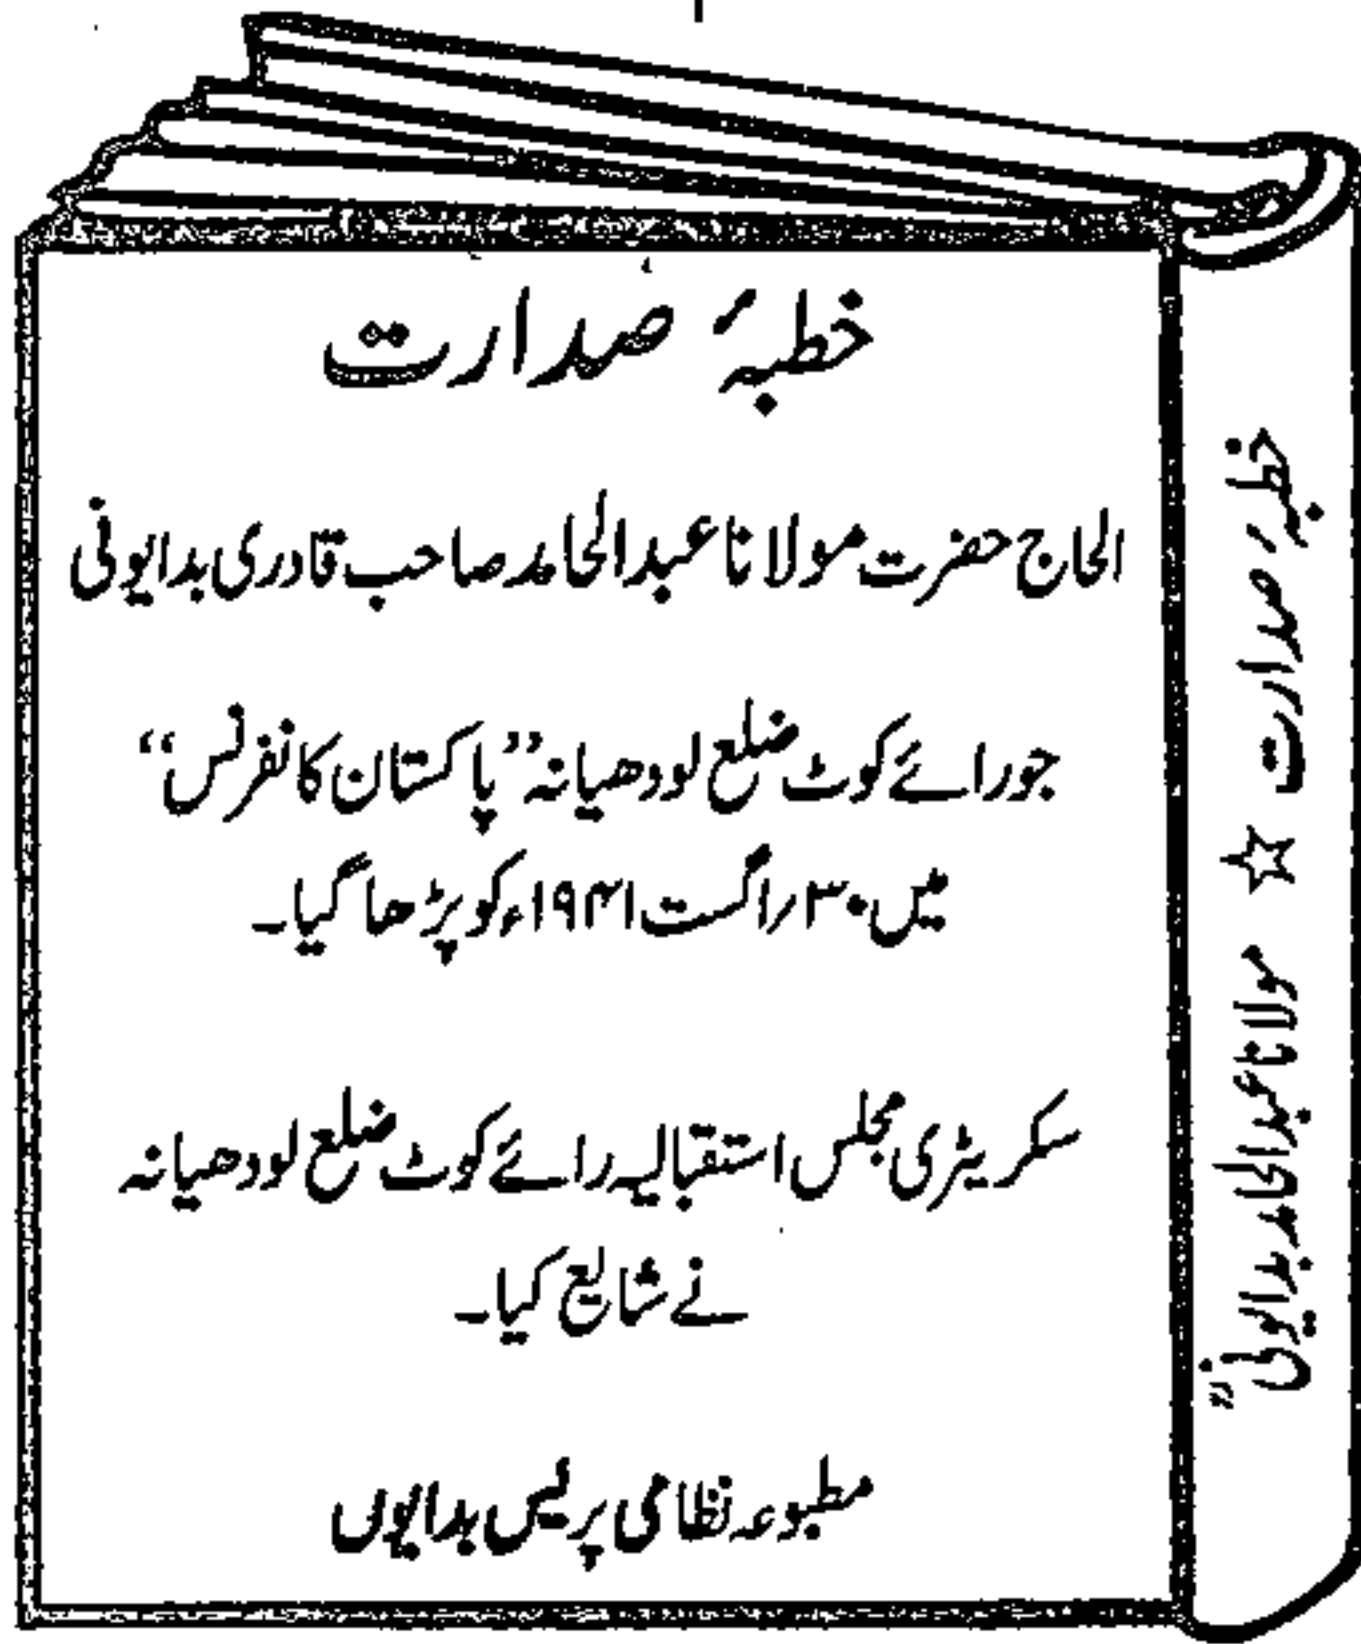 خطبۂ صدارت
الحاج حضرت مولانا عبدالحامد صاحب قادری بدایونی
جو رائے کوٹ ضلع لودھیانہ ”پاکستان کانفرنس“
میں ۳۰؍اگست ۱۹۴۱ء کو پڑھا گیا۔
سکریٹری مجلس استقبالیہ رائے کوٹ ضلع لودھیانہ
نے شایع کیا۔
مطبوعہ نظامی پریس بدایوں
خطبۂ صدارت ☆ مولانا عبدالحامد بدایونیؒ